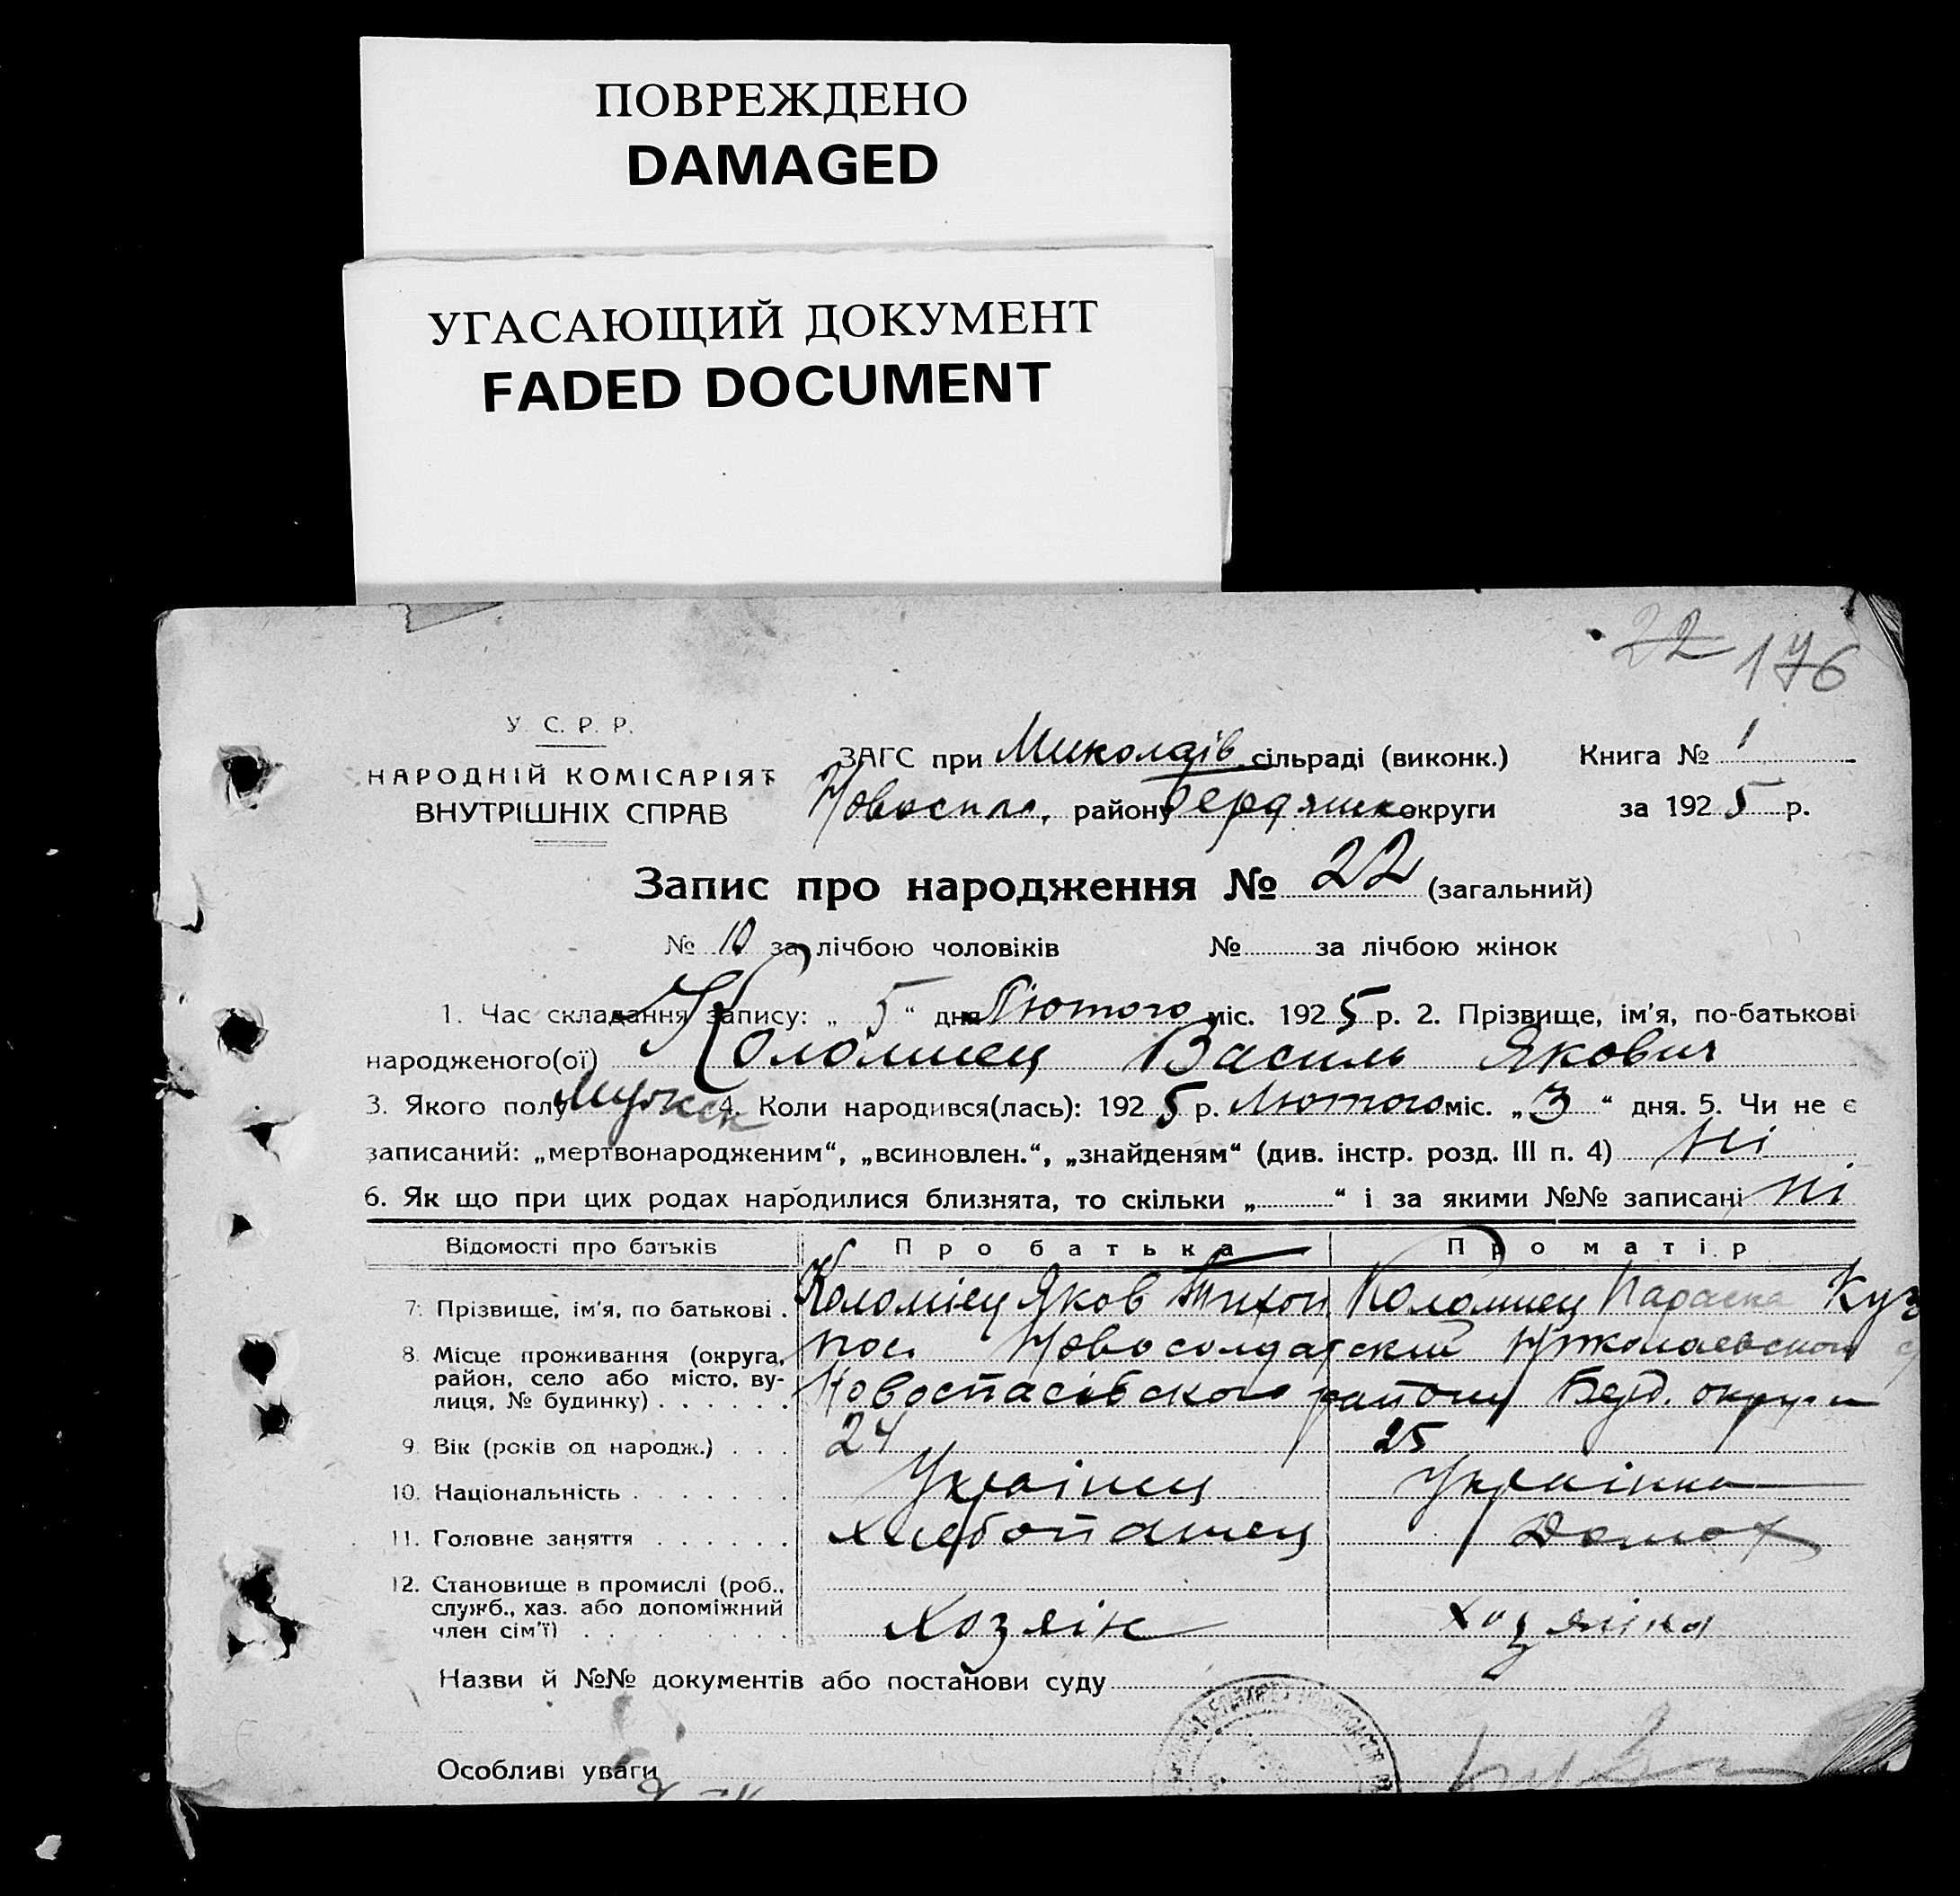 ПОВРЕЖДЕНО
DAMAGED
УГАСАЮЩИЙ ДОКУМЕНТ
FADED DOCUMENT
22 176
У. С. Р. Р.
НАРОДНІЙ КОМІСАРІЯТ
ВНУТРІШНІХ СПРАВ
ЗАГС при Миколаїв. сільраді (виконк.) Книга № 1
Новоспас. району Бердянськ округи за 1925 р.
Запис про народження № 22 (загальний)
№ 10 за лічбою чоловіків № за лічбою жінок
1. Час складання запису: „ 5 “ дня Лютого міс. 1925 р. 2. Прізвище, ім'я, по-батькові
народженого(ої) Коломиец Василь Якович
3. Якого полу мужск 4. Коли народився(лась): 1925 р. Лютого міс. „ 3 “ дня. 5. Чи не є
записаний: „мертвонародженим“, „всиновлен.“, „знайденям“ (див. інстр. розд. III п. 4) ні
6. Як що при цих родах народилися близнята, то скільки „ “ і за якими №№ записані ні
Відомості про батьків Про батька Про матір
7. Прізвище, ім'я, по батькові . Коломіец Яков Тихон Коломиец Параска Куз
8. Місце проживання (округа, район, село або місто, вулиця, № будинку) . . . . . . пос. Новосолдатский Николаевского
Новоспасівского району Берд. округи
9. Вік (років од народж.) . . . 24 25
10. Національність . . . . . . . Українец Українка
11. Головне заняття . . . . . . хлебопашец Домох
12. Становище в промислі (роб., служб., хаз. або допоміжний член сім'ї) . . . . . . . . Хозяін хозяіна
Назви й №№ документів або постанови суду
Особливі уваги